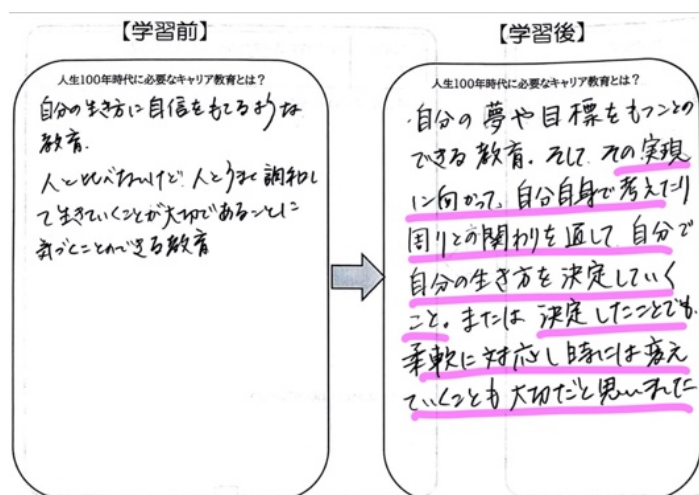 【学習前】
人生100年時代に必要なキャリア教育とは？
自分の生き方に自信をもてるような
教育.
人と比べないけど 人とうまく調和し
て生きていくことが大切であることに
気づくことのできる教育
【学習後】
人生100年時代に必要なキャリア教育とは？
・自分の夢や目標をもつことの
できる教育. そして その実現
に向かって, 自分自身で考えたり
周りとの関わりを通して 自分で
自分の生き方を決定していく
こと。または 決定したことでも.
柔軟に対応し時には変え
ていくことも大切だと思いました